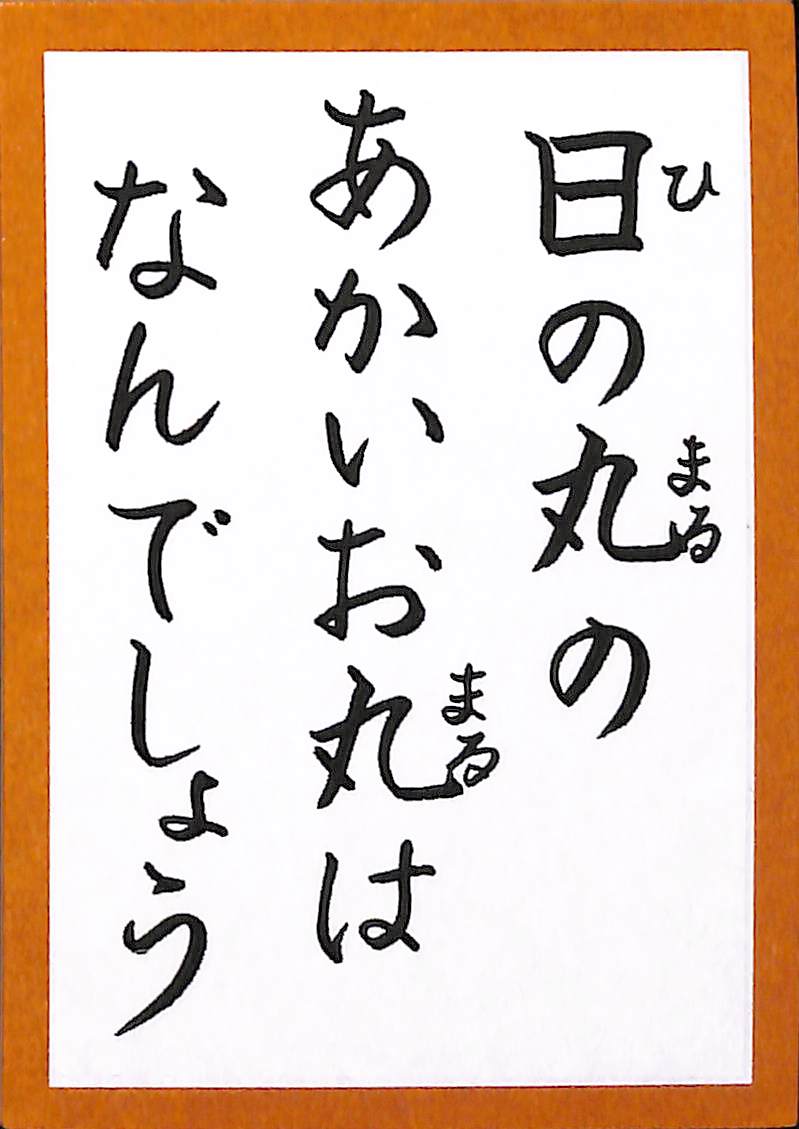 日の丸の
あかいお丸は
なんでしょう
ひ
まる
まる